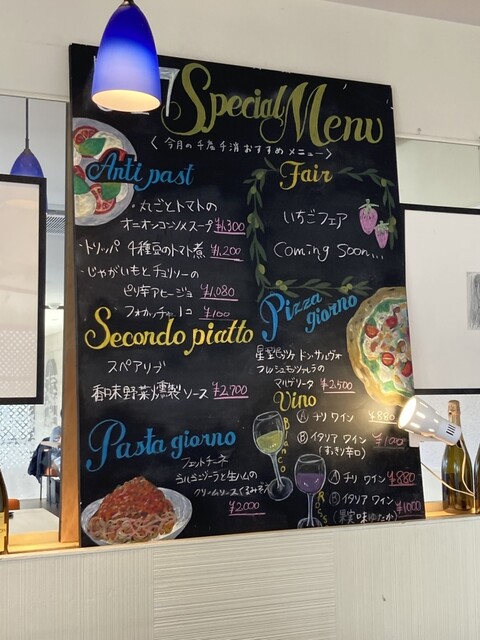 Special Menu
〈今月の千産千消おすすめメニュー〉
Anti past
・丸ごとトマトの
オニオンコンソメスープ ¥1,300
・トリッパと4種豆のトマト煮 ¥1,200
・じゃがいもとチョリソーの
ピリ辛アヒージョ ¥1,080
フォカッチャ1コ ¥100
Secondo piatto
スペアリブ
香味野菜燻製ソース ¥2,700
Pasta giorno
フェットチーネ
生ハムの
クリームソースくるみ
¥2000
Fair
いちごフェア
Coming Soon...
Pizza
giorno
星型ピッツァ ドン・サルヴォ
フレッシュモッツァレラの
マルゲリータ ¥2,500
Vino
Bianco
Ⓐ チリ ワイン ¥880
Ⓑ イタリア ワイン ¥1000
(すっきり辛口)
Rosso
Ⓐ チリ ワイン ¥880
Ⓑ イタリア ワイン ¥1000
(果実味ゆたか)